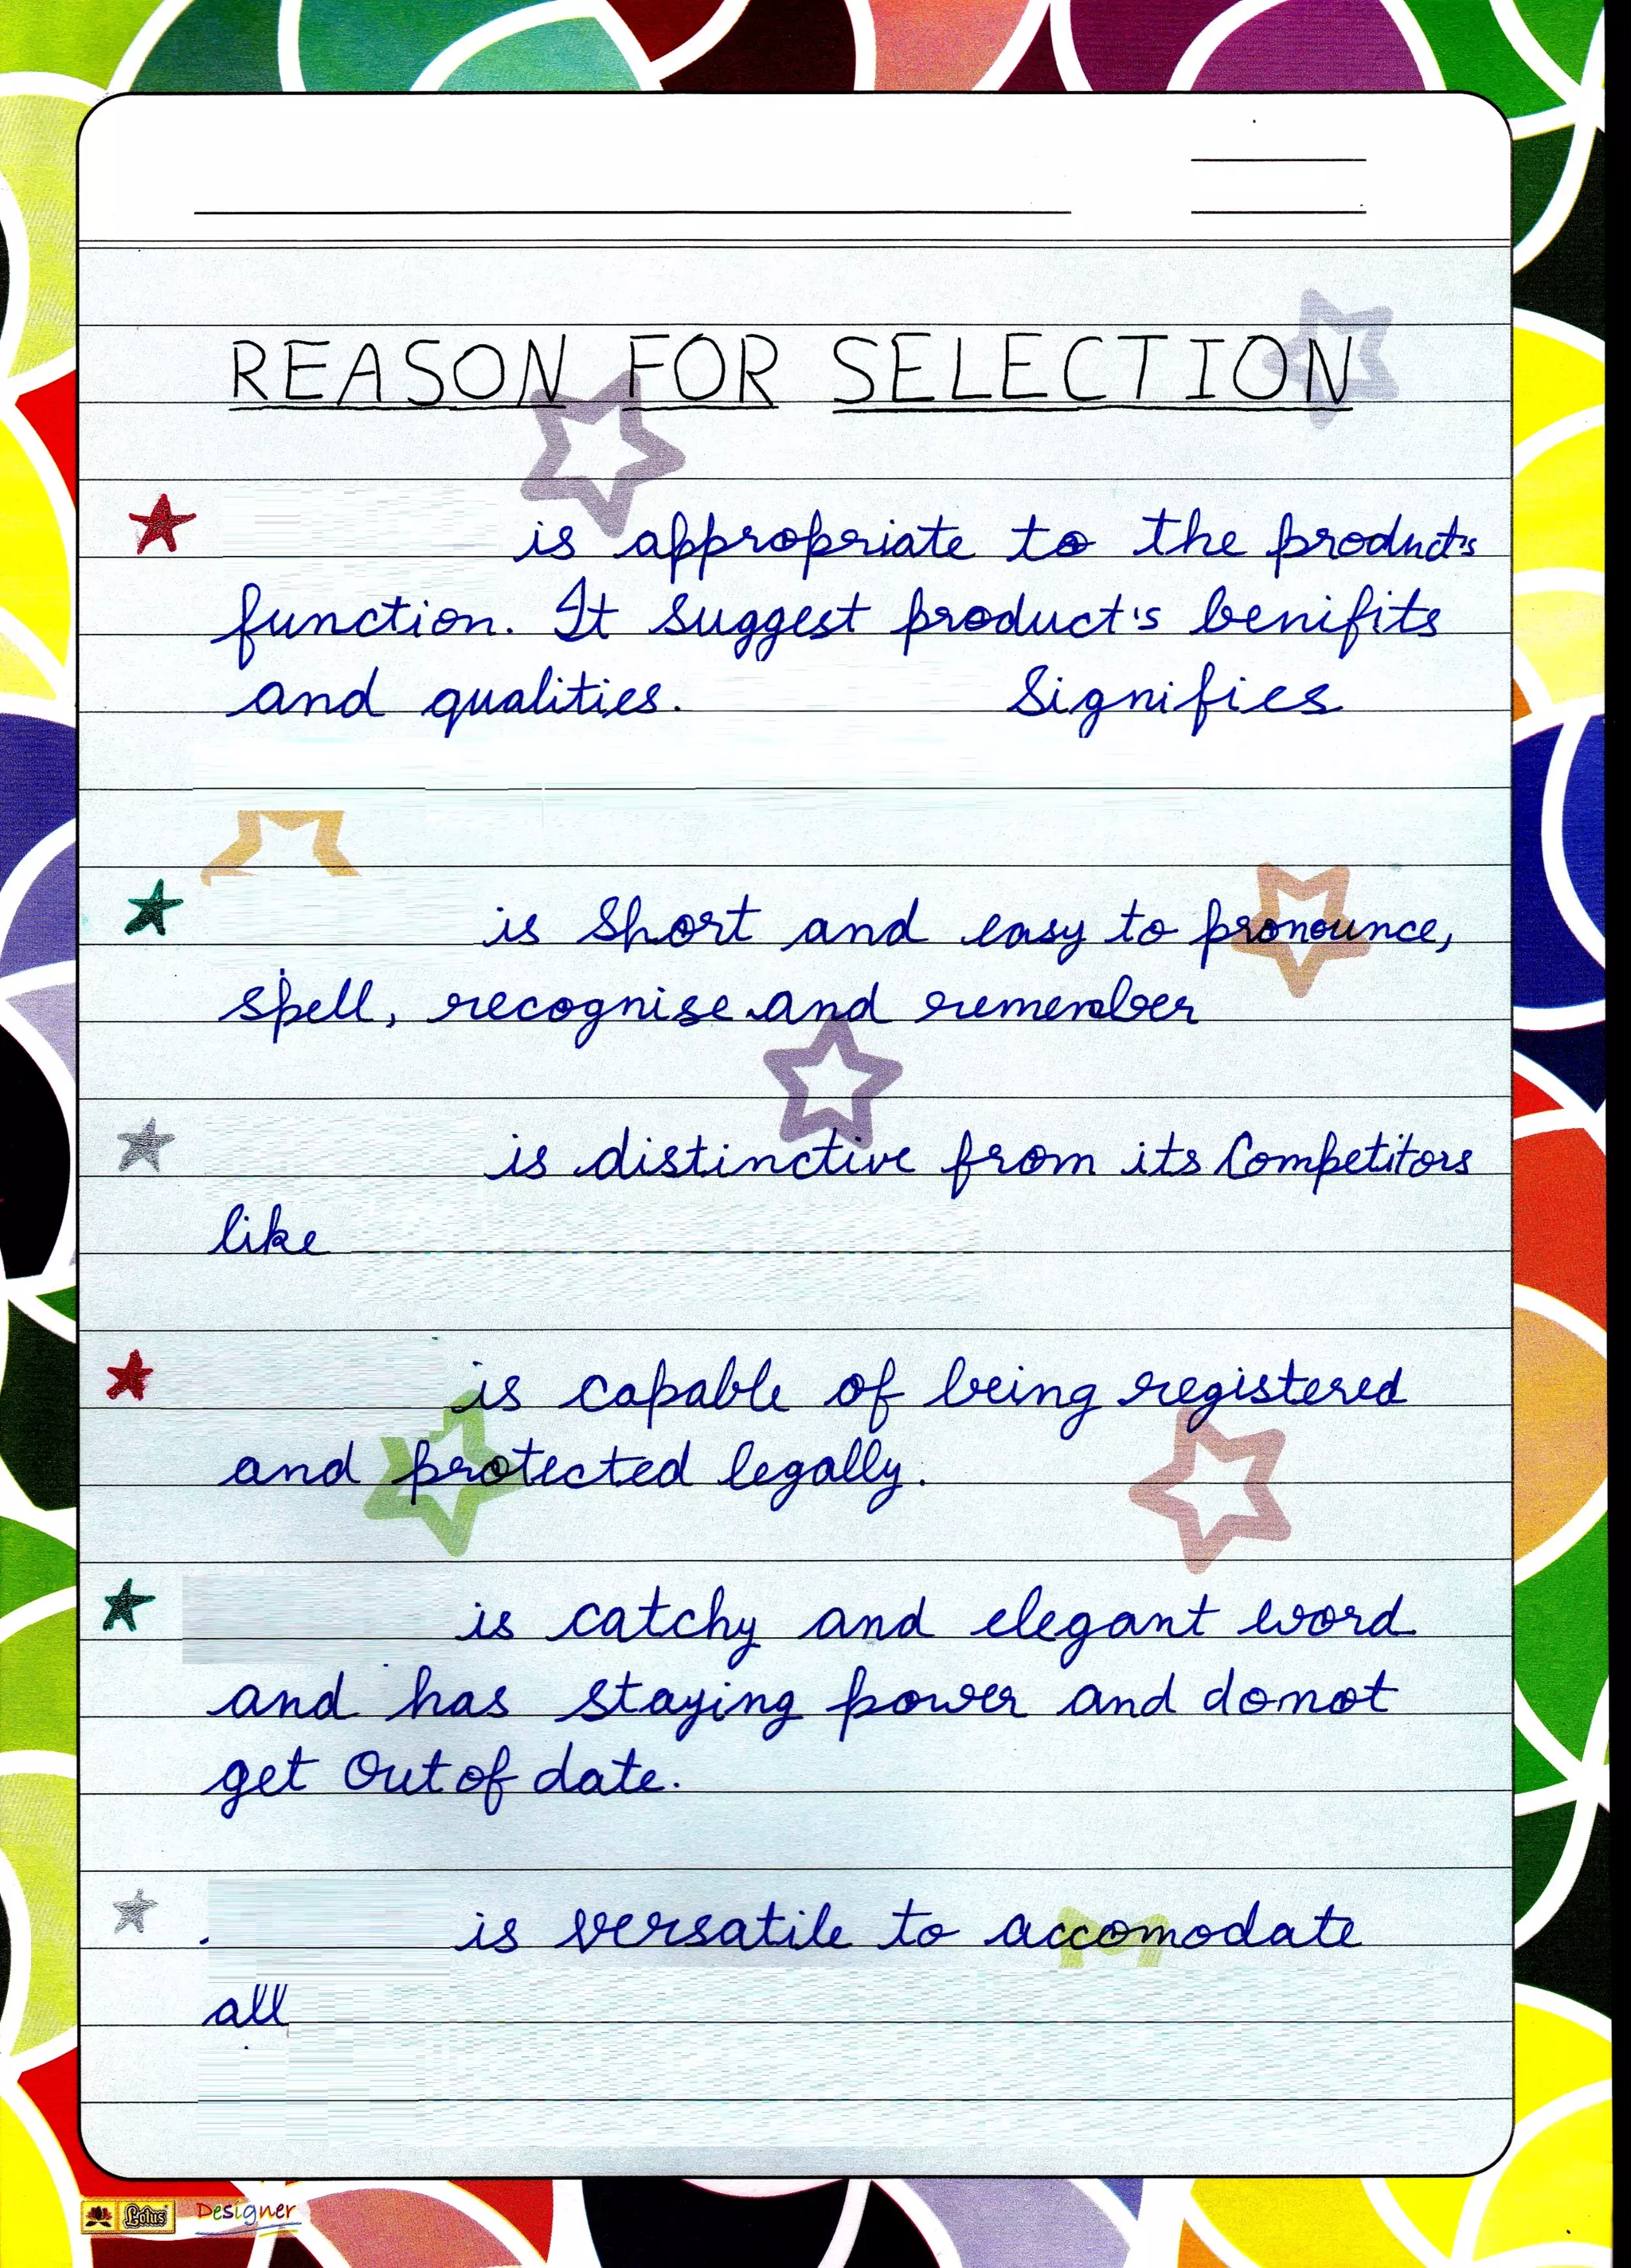 REASON FOR SELECTION
is appropriate to the product's
function. It suggest product's benifits
and qualities. Signifies
is short and easy to pronounce,
spell, recognise and remember
is distinctive from its Competitors
like
is capable of being registered
and protected legally.
is catchy and elegant word
and has staying power and donot
get out of date.
is versatile to accomodate
all
Lotus Designer